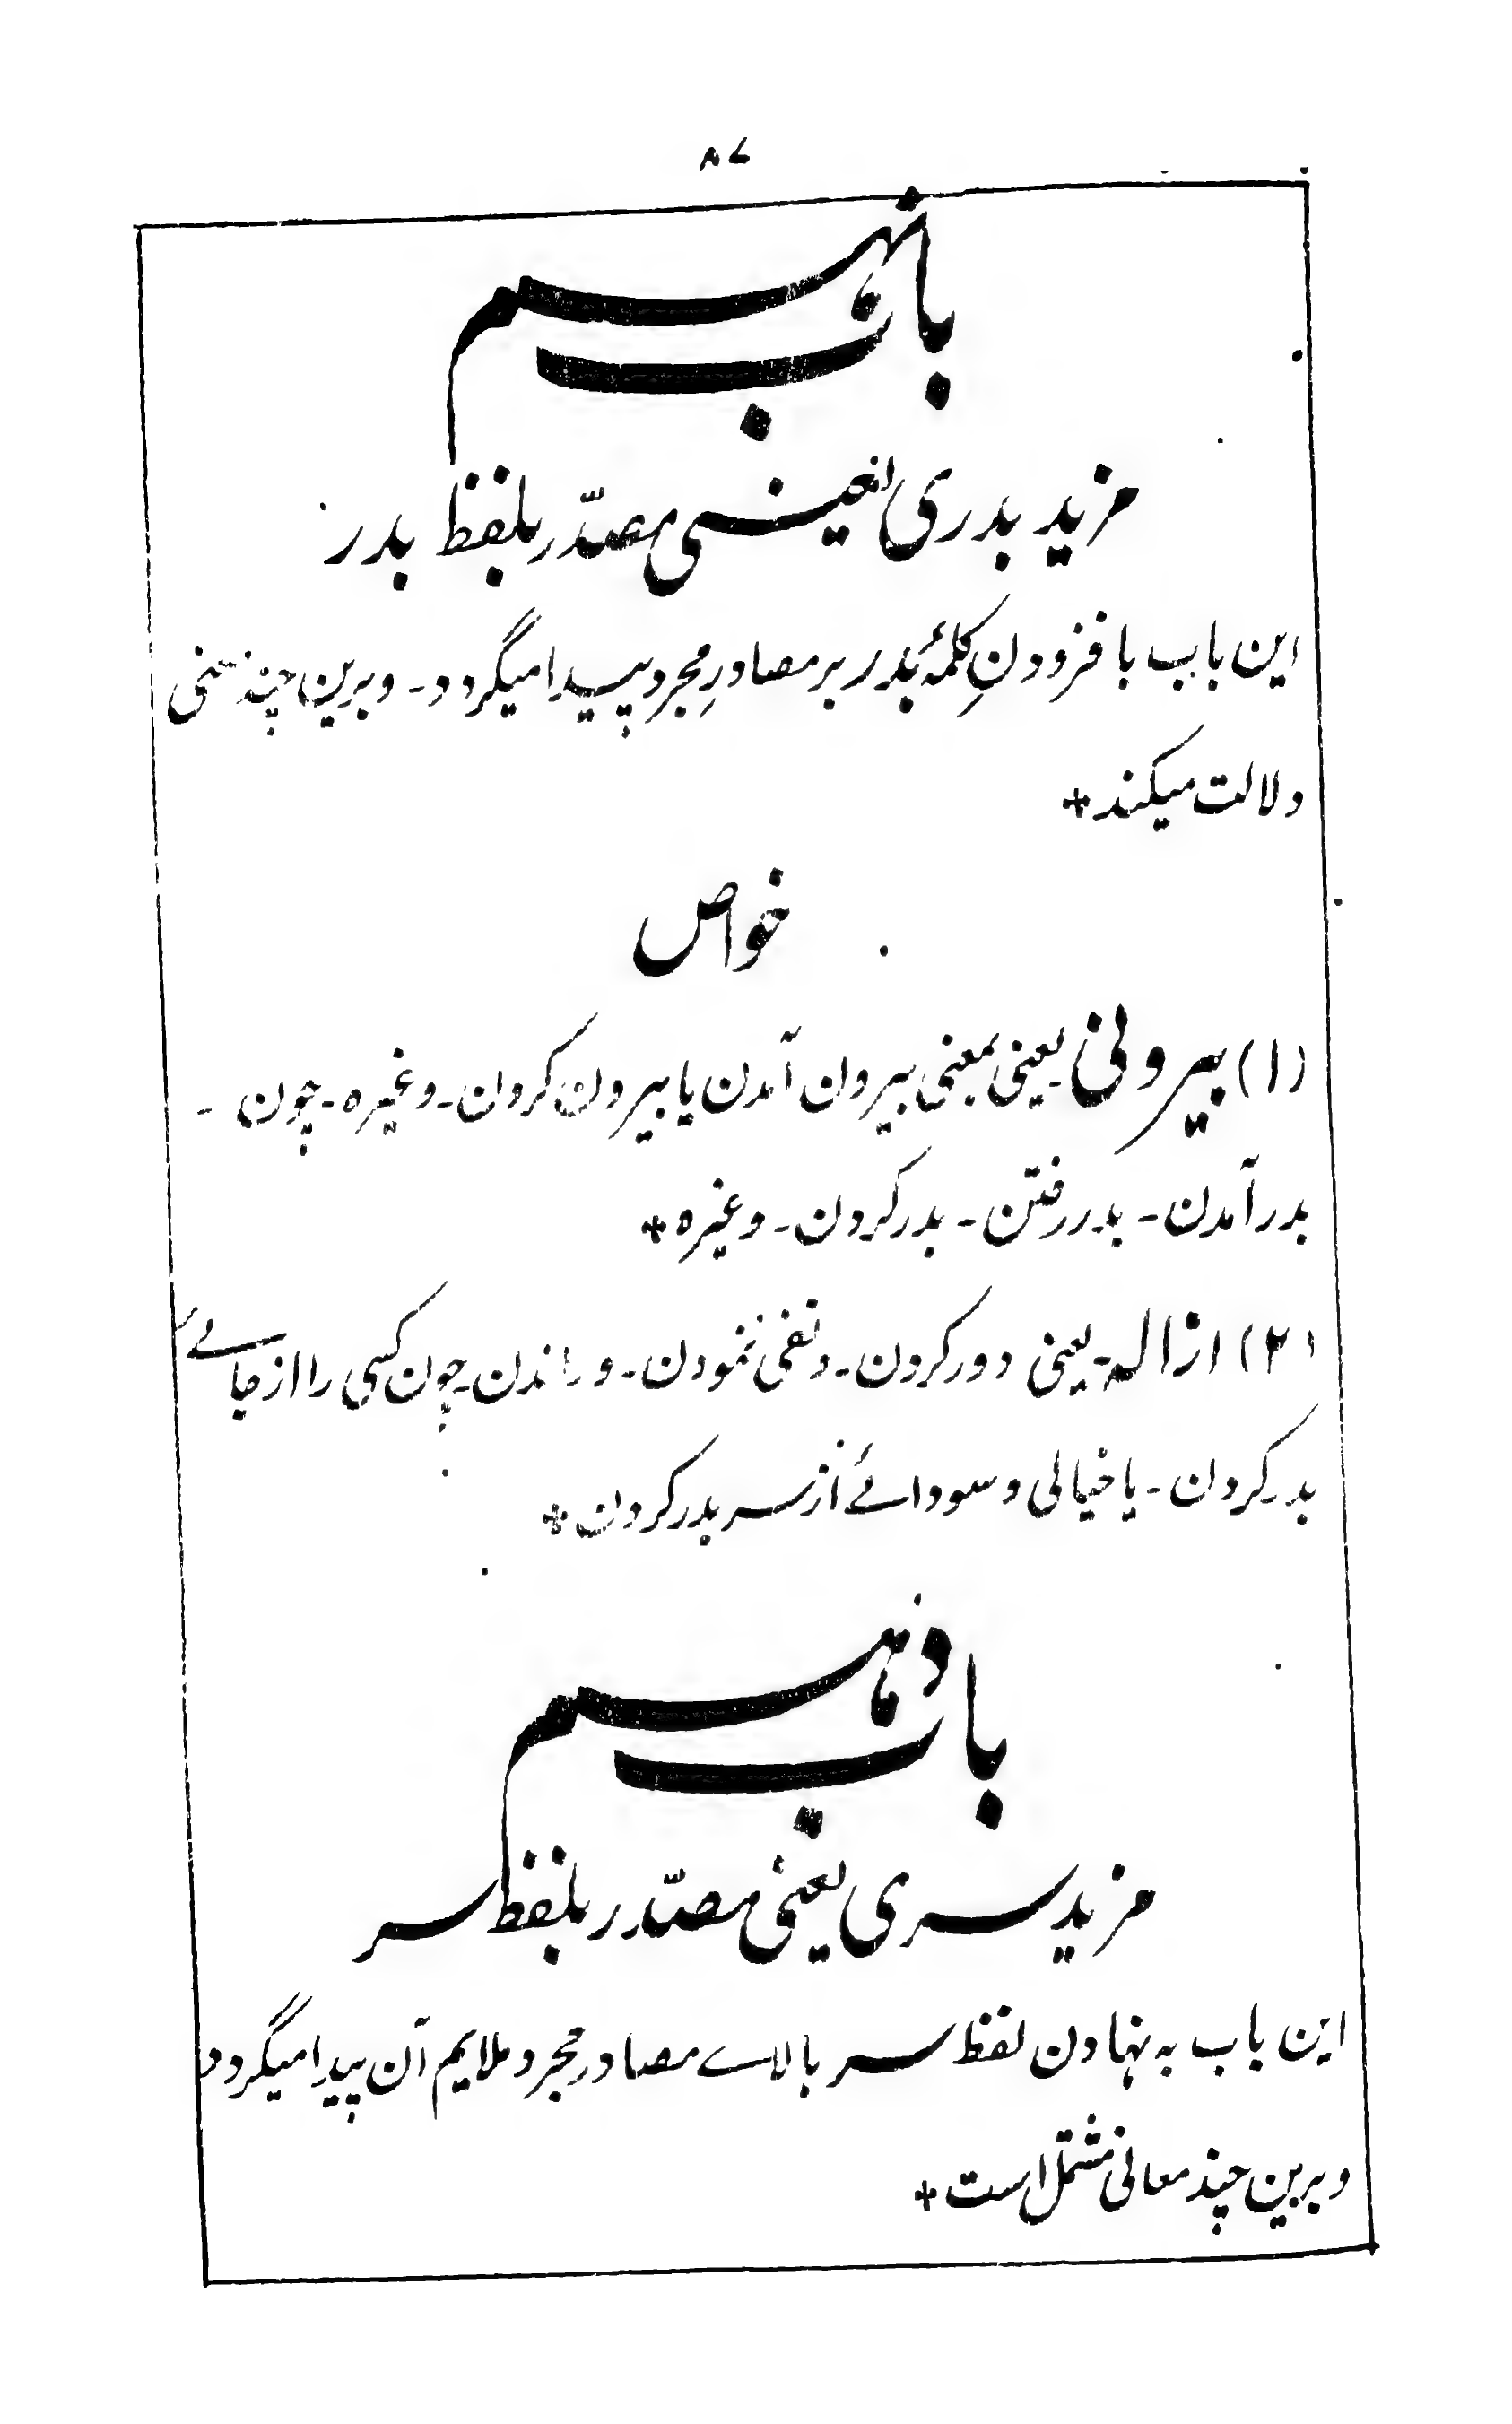 ۸۷
باب نهم
مزید بدری یعنی مصدّر بلفظ بدر
این باب بافزودنِ کلمۀ بدر بر مصادرِ مجرد پیدا میگردد۔ و برین چند معنی
دلالت میکند+
خواص
(۱) بیرونی یعنی بمعنی بیرون آمدن یا بیرون کردن۔ وغیره۔ چون۔
بدر آمدن۔ بدر رفتن۔ بدر کردن۔ وغیره+
(۲) ازاله۔ یعنی دور کردن۔ و نفی نمودن۔ و راندن۔ چون کسی را از جائے
بدر کردن۔ یا خیالی و سودائے از سر بدر کردن+
باب دهم
مزید سری یعنی مصدّر بلفظ سر
این باب به نهادن لفظ سر بالاے مصادر مجرد ملایم آن پیدا میگردد
و برین چند معانی مشتمل است+